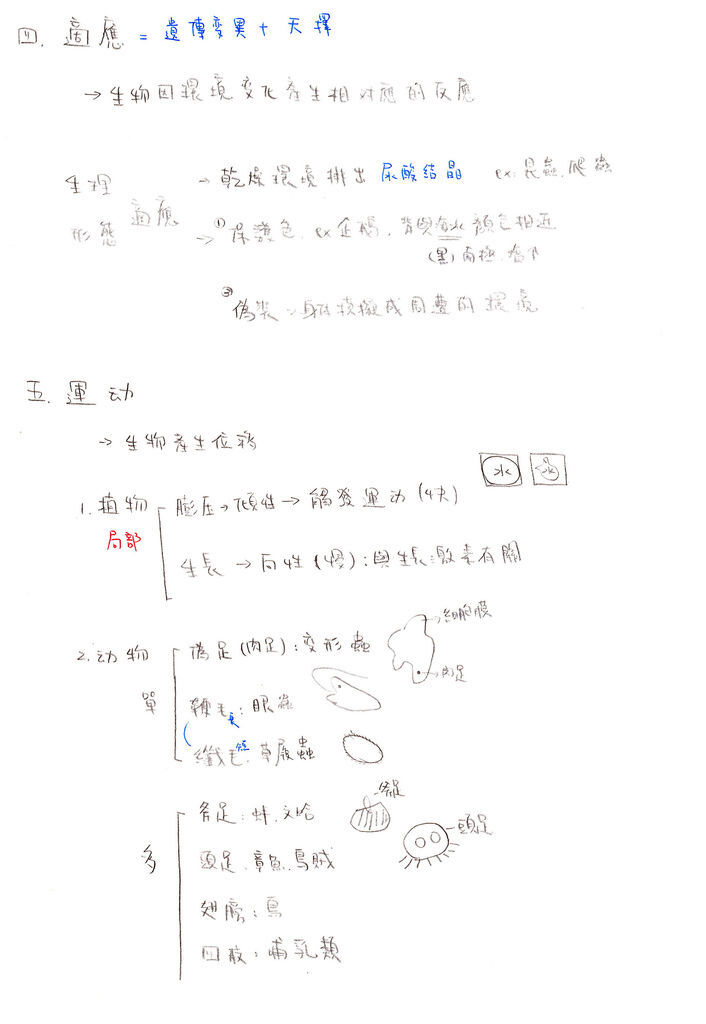 四. 適應 = 遺傳變異 + 天擇
→ 生物因環境变化產生相对應的反應
生理 → 乾燥環境排出 尿酸结晶 ex: 昆蟲. 爬蟲
形態 適應 → ① 保護色. ex 企鵝. 背與海水 顏色相近
(黑) 南極.
② 偽裝: 身体模擬成周遭的環境
五. 運动
→ 生物產生位移
水 水
1. 植物 膨压→傾性→ 觸發運动 (快)
局部
生長 → 向性 (慢): 與生長激素有關
細胞膜
2. 动物 偽足 (肉足): 变形蟲
肉足
單 鞭毛長: 眼蟲
纖毛短. 草履蟲
斧足
斧足: 蚌. 文哈
頭足
多 頭足. 章魚. 烏賊
翅膀: 鳥
四肢: 哺乳類